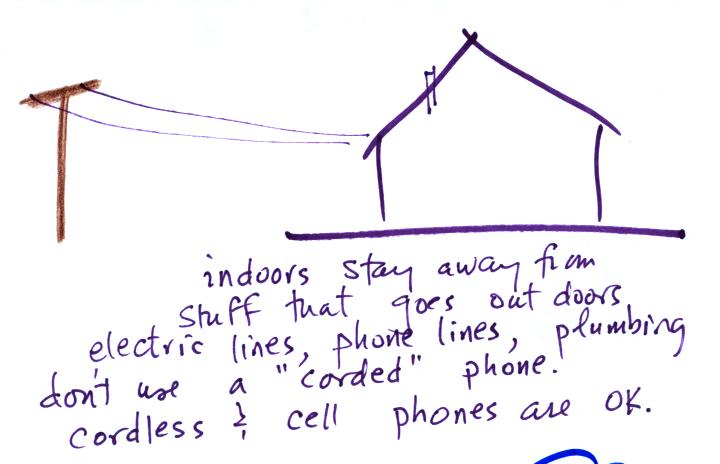 indoors stay away from
stuff that goes out doors
electric lines, phone lines, plumbing
don't use a "corded" phone.
cordless & cell phones are OK.